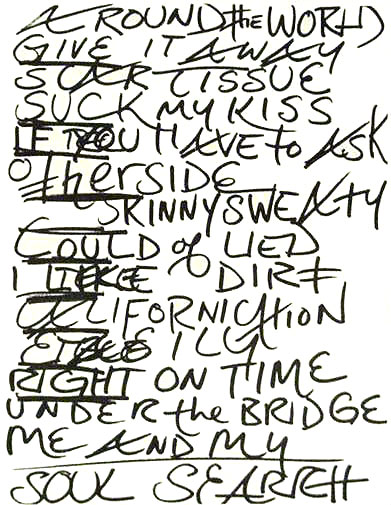 AROUND the WORLD
GIVE IT AWAY
SCAR TISSUE
SUCK MY KISS
IF YOU HAVE to ASK
OtherSIDE
SKINNY SWEATY
COULD of LIED
I LIKE DIRT
CALIFORNICATION
RIGHT ON TIME
UNDER the BRIDGE
ME AND MY
SOUL SEARCH